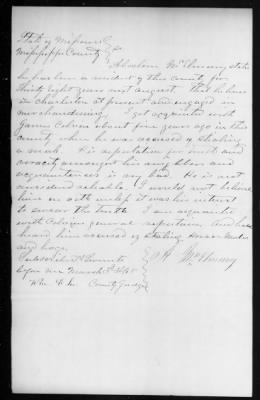 State of Missouri
Mississippi County } ss
Absalom McElmurry states
he has been a resident of this county for
thirty eight years next august that he lives
in Charleston at present and engaged in
merchandising. I got acquainted with
James Colvin about five years ago in this
county when he was accused of stealing
a mule. His reputation for truth and
veracity amongst his neighbors and
acquaintances is very bad. He is not
considered reliable. I would not believe
him on oath unless it was his interest
to swear the truth I am acquainted
with Colvins general reputation and have
heard him accused of stealing Horses Mules
and hogs.
Subscribed & sworn to
before me March 3
County Judge
A McElmurry